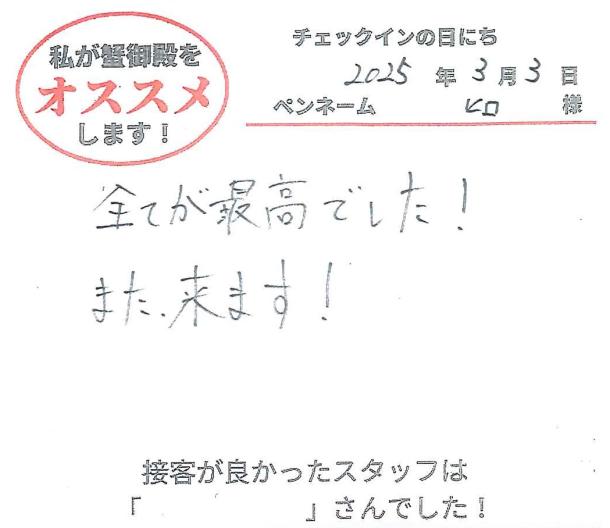 私が蟹御殿を
オススメ
します！
チェックインの日にち
2025 年 3 月 3 日
ペンネーム ヒロ 様
全てが最高でした！
また、来ます！
接客が良かったスタッフは
「 」さんでした！